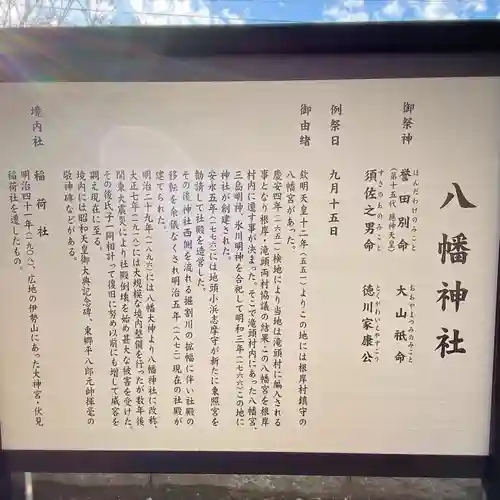 八幡神社
御祭神
ほんだわけのみこと
誉田別命
(第十五代 應神天皇)
すさのおのみこと
須佐之男命
おおやまつみのみこと
大山祇命
とくがわいえやすこう
徳川家康公
例祭日 九月十五日
御由緒
欽明天皇十二年(五五一)よりこの地には根岸村鎮守の
八幡宮があった。
慶安四年(一六五一)検地により当地は滝頭村に編入される
事となり根岸・滝頭両村協議の結果、この八幡宮を根岸
村内に遷す事が決まった。そこで滝頭村内にあった八幡宮、
三島明神、氷川明神を合祀して明和三年(一七六六)この地に
神社が創建された。
安永五年(一七七六)には地頭小浜志摩守が新たに東照宮を
勧請して社殿を造営した。
その後神社西側を流れる堀割川の拡幅に伴い社殿の
移転を余儀なくされ明治五年(一八七二)現在の社殿が
建てられた。
明治二十九年(一八九六)には八幡大神より八幡神社に改称、
大正七年(一九一八)には大規模な境内整備を行ったが数年後
関東大震災により社殿倒壊を始め甚大な被害を受けた。
その後氏子一同相計って復旧に努め以前にも増して威容を
調え現在に至る。
境内には昭和天皇御大典記念碑、東郷平八郎元帥揮毫の
敬神碑などがある。
境内社
稲荷社
明治四十一年(一九〇八)、広地の伊勢山にあった大神宮・伏見
稲荷社を遷したもの。